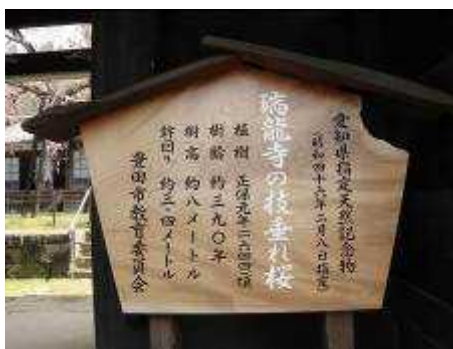 愛知県指定天然記念物
(昭和四十六年二月八日指定)
瑞龍寺の枝垂れ桜
植樹 正保元年(一六四四)頃
樹齢 約三九〇年
樹高 約八メートル
幹回り 約三・四メートル
豊田市教育委員会